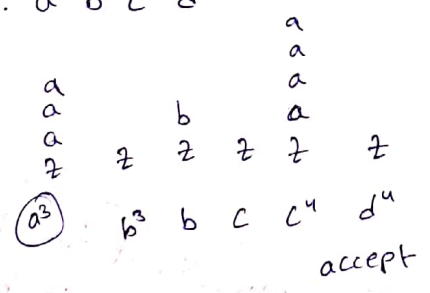 a
a
a a
a b a
a z z z z z z
a³ b³ b c c⁴ d⁴
accept